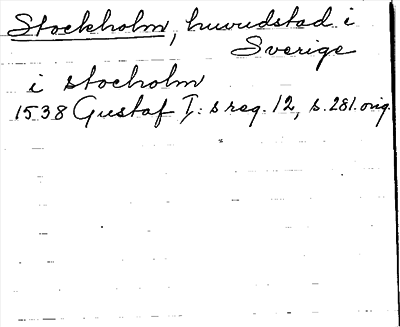 Stockholm, huvudstad i
Sverige
i stocholm
1538 Gustaf I:s reg. 12, s. 281. orig.